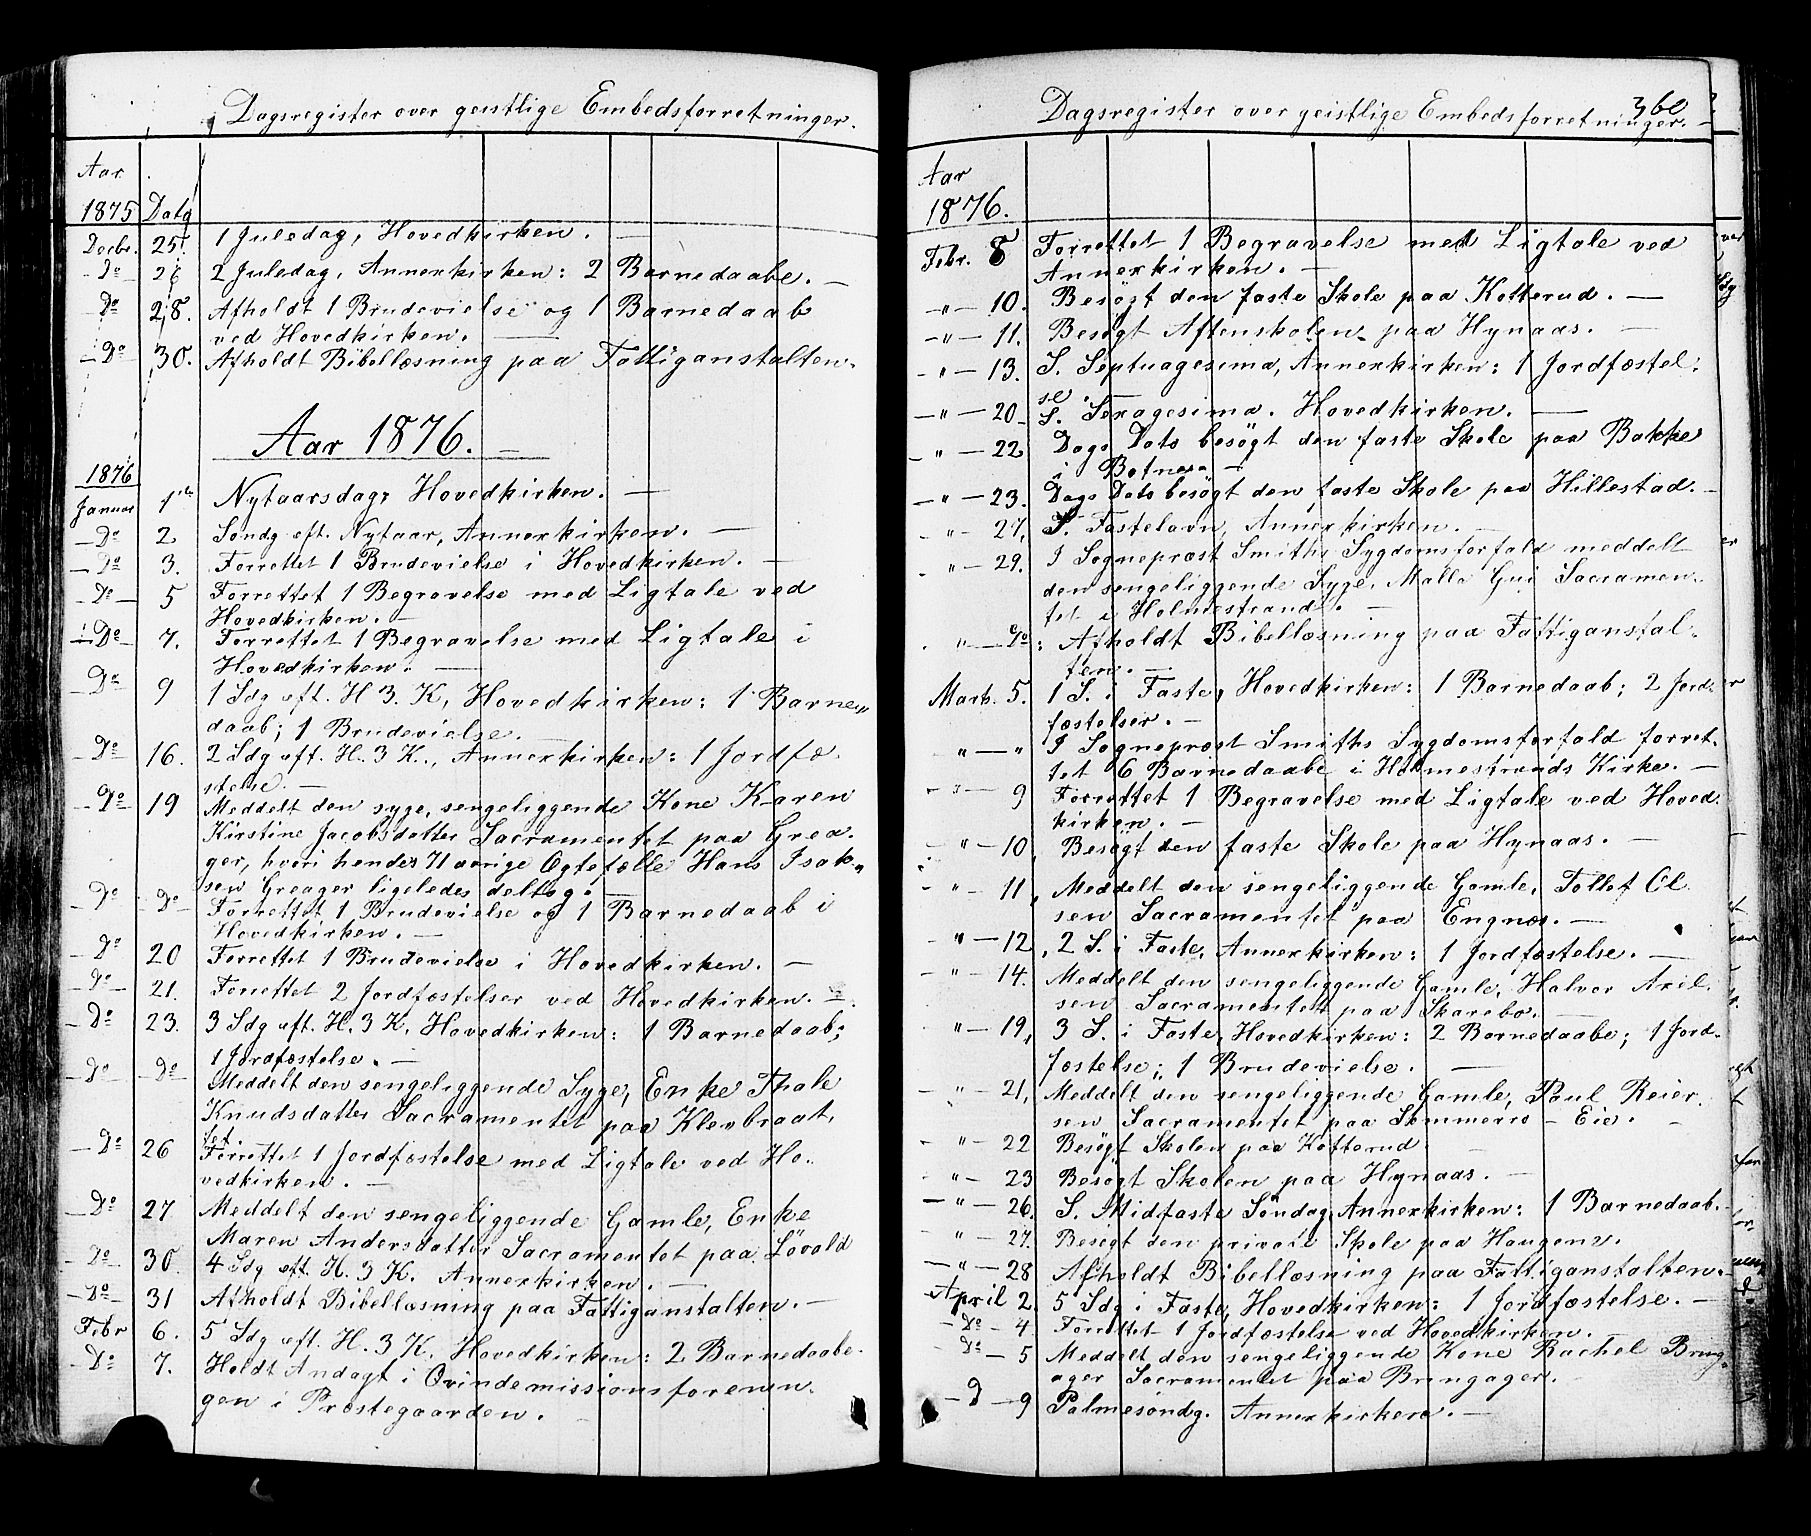 Dagsregister over geistlige Embedsforretninger.
Aar
1875 Datg
Decbr. 25. 1 Juledag, Hovedkirken. —
Do 26 2 Juledag, Annexkirken: 2 Barnedaabe. —
Do 28. Afholdt 1 Brudevielse og 1 Barnedaab
ved Hovedkirken. —
Do 30. Afholdt Bibellæsning paa Fattiganstalten.
Aar 1876. —
1876
Januar 1ste Nytaarsdag, Hovedkirken. —
Do 2 Søndg eft. Nytaar, Annexkirken. —
Do 3. Forrettet 1 Brudevielse i Hovedkirken. —
Do 5 Forrettet 1 Begravelse med Ligtale ved
Hovedkirken. —
Do 7. Forrettet 1 Begravelse med Ligtale i
Hovedkirken. —
Do 9 1 Sdg eft. H. 3. K, Hovedkirken: 1 Barne„
daab; 1 Brudevielse. —
Do 16. 2 Sdg eft. H. 3 K., Annexkirken: 1 Jordfæ.
stelse. —
Do 19 Meddelt den syge, sengeliggende Kone Karen
Kirstine Jacobsdatter Sacramentet paa Grea.
ger, hvori hendes 71 aarige Ægtefælle Hans Isak„
sen Greager ligeledes deltog. —
Do Do Forrettet 1 Brudevielse og 1 Barnedaab i
Hovedkirken. —
Do 20 Forrettet 1 Brudevielse i Hovedkirken. —
Do 21. Forrettet 2 Jordfæstelser ved Hovedkirken. —
Do 23. 3 Sdg eft. H. 3 K, Hovedkirken: 1 Barnedaab;
1 Jordfæstelse. —
Do Do Meddelt den sengeliggende Syge, Enke Thale
Knudsdatter Sacramentet paa Klevbraat,
tet.
Do 26 Forrettet 1 Jordfæstelse med Ligtale ved Ho.
vedkirken. —
Do 27 Meddelt den sengeliggende Gamle, Enke
Maren Andersdatter Sacramentet paa Løvald
Do 30. 4 Sdg eft. H. 3 K. Annexkirken. —
Do 31 Afholdt Bibellæsning paa Fattiganstalten. —
Febr 6. 5 Sdg eft. H. 3 K, Hovedkirken: 2 Barnedaabe.
Do 7. Holdt Andagt i Qvindemissionsforenin.
gen i Præstegaarden. —
Dagsregister over geistlige Embedsforretninger.
360
Aar
1876.
Febr. 8 Forrettet 1 Begravelse med Ligtale ved
Annexkirken. —
" 10. Besøgt den faste Skole paa Kotterud. —
" 11. Besøgt Aftenskolen paa Hynaas. —
" 13. S. Septuagesima, Annexkirken: 1 Jordfæstel:
se.
" 20 S. Sexagesima. Hovedkirken. —
" 22 Dags Dato besøgt den faste Skole paa Bakke
i Botne. —
" 23. Dags Dato besøgt den faste Skole paa Hillestad. —
" 27, S. Fastelavn, Annexkirken. —
" 29. I Sognepræst Smiths Sygdomsforfald meddelt
den sengeliggende Syge, Malla Gui Sacramen.
tet i Holmestrand. —
" Do: Afholdt Bibellæsning paa Fattiganstal.
ten. —
Marts. 5. 1 S. i Faste, Hovedkirken: 1 Barnedaab; 2 Jord.
fæstelser. —
" " I Sognepræst Smiths Sygdomsforfald forret.
tet 6 Barnedaabe i Holmestrands Kirke. —
" 9 Forrettet 1 Begravelse med Ligtale ved Hoved.
kirken. —
" 10, Besøgt den faste Skole paa Hynaas. —
" 11, Meddelt den sengeliggende Gamle, Tollef Ol
sen Sacramentet paa Engnæs. —
" 12, 2 S. i Faste, Annexkirken: 1 Jordfæstelse. —
" 14. Meddelt den sengeliggende Gamle, Halvor Axel.
sen Sacramentet paa Skarebo. —
" 19, 3 S. i Faste, Hovedkirken: 2 Barnedaabe; 1 Jord.
fæstelse; 1 Brudevielse. —
" 21, Meddelt den sengeliggende Gamle, Paul Reier.
sen Sacramentet paa Sommerro - Eie. —
" 22 Besøgt Skolen paa Kotterud.
" 23 Besøgt Skolen paa Hynaas. —
" 26. S. Midfaste Søndag, Annexkirken: 1 Barnedaab.
" 27. Besøgt den private Skole paa Haugene.
" 28 Afholdt Bibellæsning paa Fattiganstalten. —
April 2. 5 Sdg i Faste, Hovedkirken: 1 Jordfæstelse. —
Do 4 Forrettet 1 Jordfæstelse ved Hovedkirken. —
Do 5 Meddelt den sengeliggende Kone Rachel Bring„
ager Sacramentet paa Bringager. —
D 9 Palmesøndg. Annexkirken. —